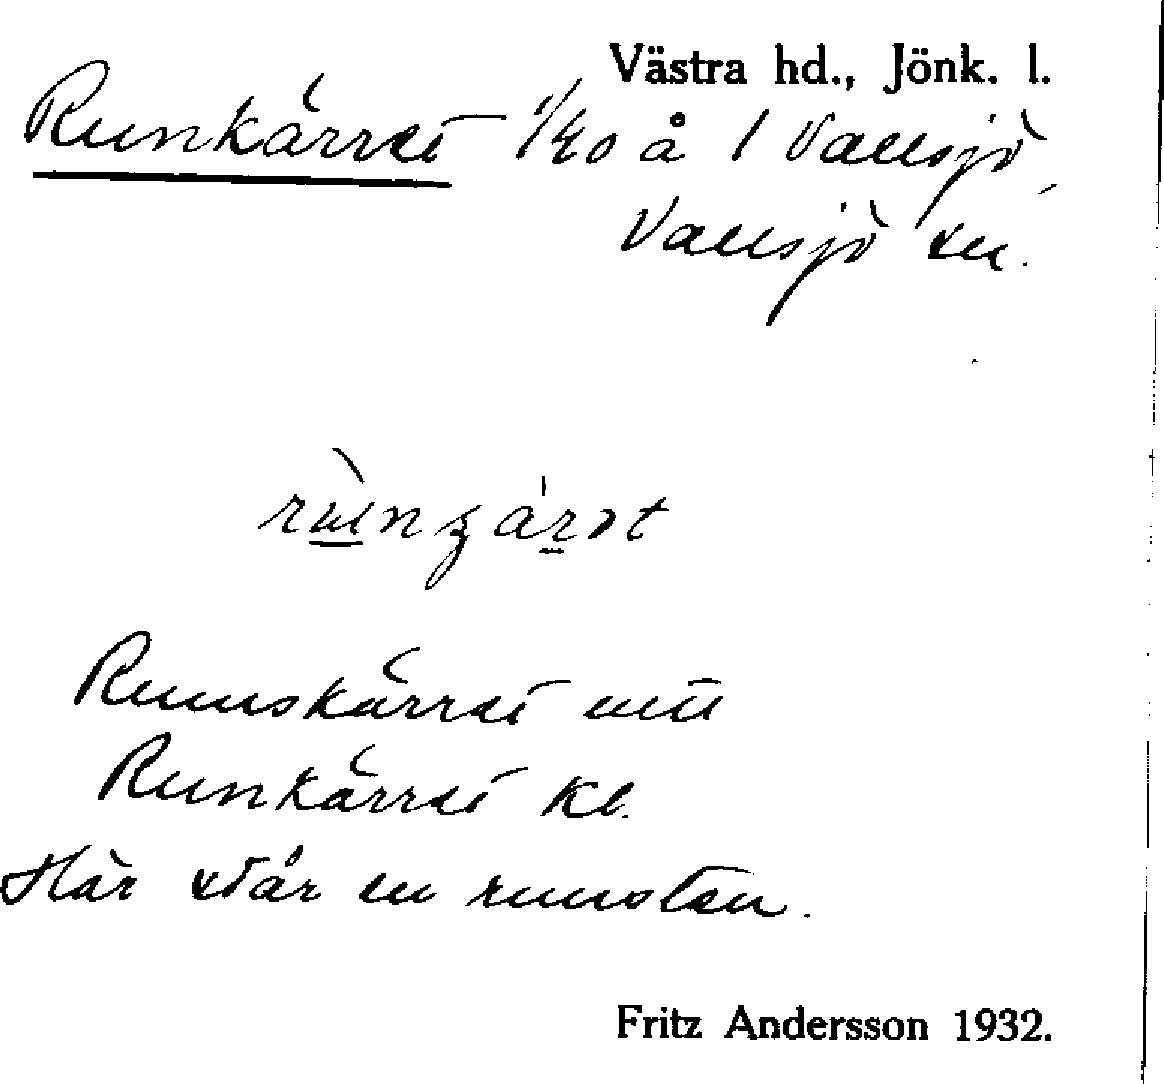 Västra hd., Jönk. l.
Runkärret 1/40 å 1 Vallsjö,
Vallsjö sn.
Runnskärret utt
Runkärret kb.
Här står en runsten.
Fritz Andersson 1932.